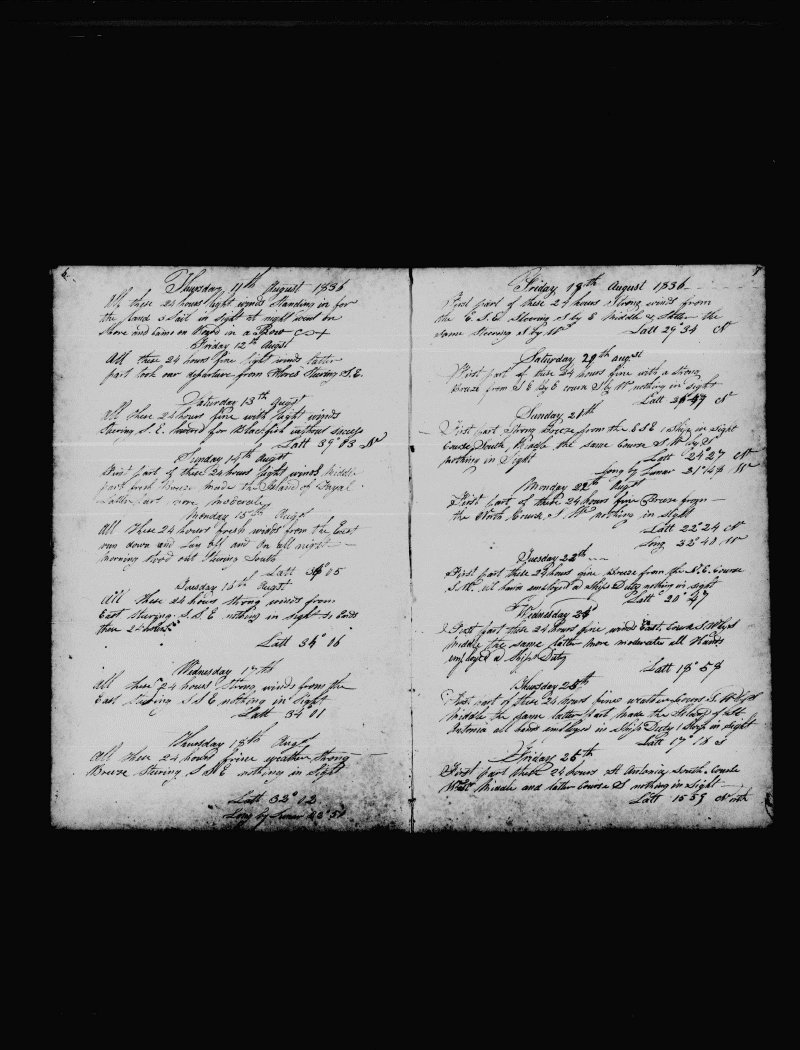 6
Thursday 11th August 1836
All these 24 hours light winds Standing in for
the land 3 Sail in Sight at night went on
Shore and Came on Board in a
Friday 12th Augst
All these 24 hours fine light winds latter
part took our departure from Flores Stearing S.E.
Saturday 13th Augst
All these 24 hours fine with light winds
Stearing S.E. for Blackfish without success
Latt 39° 03 N
Sunday 14th Augst
First part of these 24 hours light winds Middle
part fresh breeze made the Island of Fayal
Latter part more moderate
Monday 15th Augst
All these 24 hours fresh winds from the East
run down and Lay off and On all night
morning Stood out Stearing South
Latt 36° 05
Tuesday 16th Augst
All these 24 hours strong winds from
East stearing S.S.E. nothing in sight so Ends
these 24 hours
Latt 34° 06
Wednesday 17th
All these 24 hours Strong winds from the
East Stearing S S E nothing in Sight
Latt 34° 01
Thursday 18th Augst
All these 24 hours fine weather Strong
Breeze Stearing S S E nothing in Sight
Latt 32° 02
Long by Lunar 23° 51
7
Friday 19th August 1836
First part of these 24 hours Strong winds from
the E.S.E Stearing S by E Middle & Latter the
same Steering S by W
Latt 29° 34 N
Saturday 20th augst
First part of these 24 hours fine with a strong
Breeze from S E by E course S by W nothing in sight
Latt 26° 47 N
Sunday 21th
First part Strong Breeze from the E S E 1 Ship in sight
Course South Middle the same Course S W by S
nothing in Sight
Latt 24° 27 N
Long by Lunar 31° 48 W
Monday 22th Augst
First part of these 24 hours fine Breeze from
the North Course S. W nothing in sight
Latt 22° 24 N
Long 32° 40 W
Tuesday 23th
First part these 24 hours fine breeze from the N.E. Course
S.W. all hands employed in Ships Duty nothing in sight
Latt 20° 47
Wednesday 24
First part these 24 hours fine winds East Course S W by S
middle the same latter more moderate all Hands
employed in Ships Duty
Latt 18° 58
Thursday 25th
First part of these 24 hours fine weather Course S. W by S
Middle the same latter part made the Island of St
Antonia all hands employed in Ships Duty 1 Ship in sight
Latt 17° 16
Friday 26th
First part these 24 hours St Antonia South Course
West Middle and latter Course S nothing in Sight
Latt 15 59 North